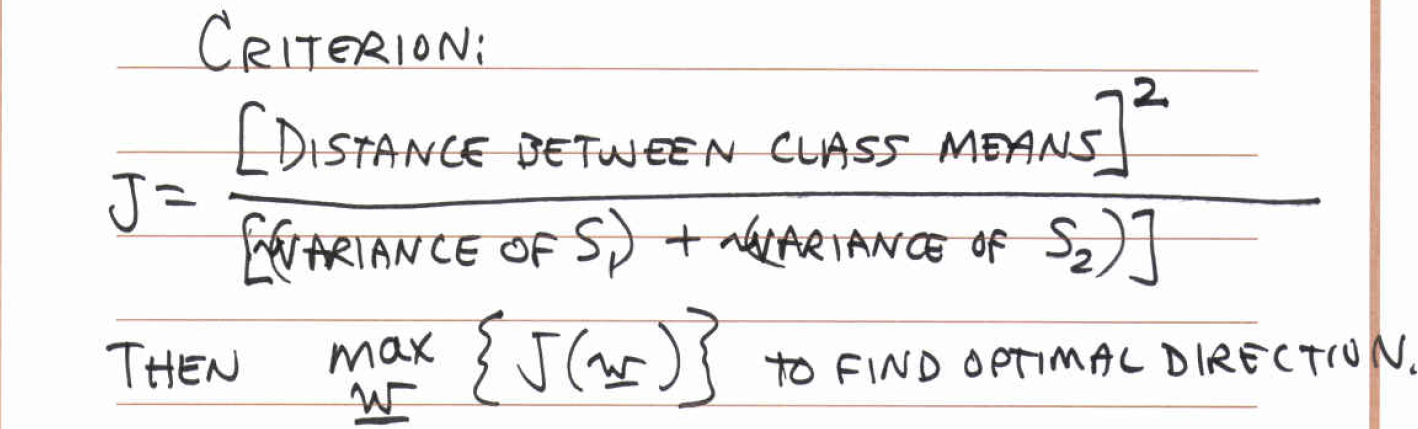 CRITERION:
[DISTANCE BETWEEN CLASS MEANS]²
J =
[(VARIANCE OF S₁) + (VARIANCE OF S₂)]
THEN max {J(w)} TO FIND OPTIMAL DIRECTION.
w